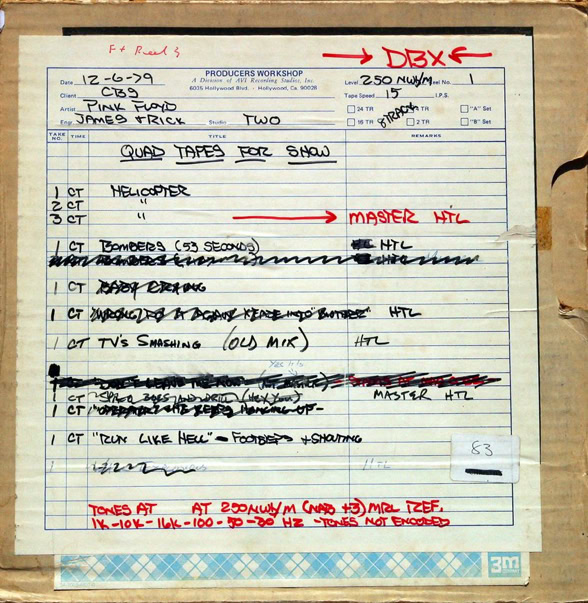 Ft Reel 3
→ DBX ←
PRODUCERS WORKSHOP
A Division of AVI Recording Studios, Inc.
6035 Hollywood Blvd. - Hollywood, Ca. 90028
Date 12-6-79
Level 250 NW/M Reel No. 1
Client CBS
Tape Speed 15 I.P.S.
Artist PINK FLOYD
24 TR 8 TRACK TR "A" Set
Engr. JAMES & RICK Studio TWO
16 TR 2 TR "B" Set
TAKE NO. TIME TITLE REMARKS
QUAD TAPES FOR SHOW
1 CT HELICOPTER
2 CT "
3 CT " → MASTER HTL
1 CT BOMBERS (53 SECONDS) HTL
1 CT BABY CRYING
1 CT HTL
1 CT TV'S SMASHING (OLD MIX) HTL
Yes it is
1 CT (HEY YOU) MASTER HTL
1 CT "OPERATOR" HE KEEPS HANGING UP -
1 CT "RUN LIKE HELL" - FOOTSTEPS & SHOUTING
83
1 HTL
TONES AT AT 250 NW/M (NAB +3) MRL REF.
1K-10K-16K-100-50-30 HZ -TONES NOT ENCODED
3M